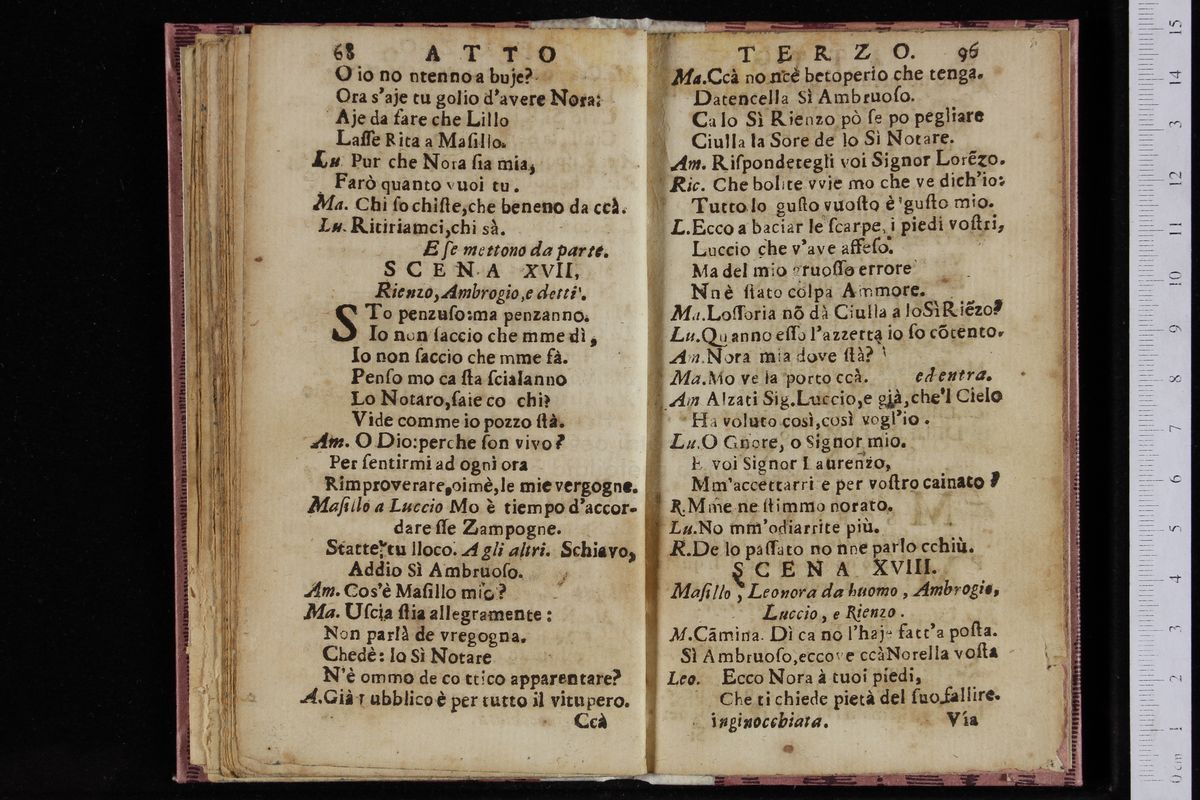 68 ATTO
O io no ntenno a buje?
Ora s'aje tu golio d'avere Nora:
Aje da fare che Lillo
Laſſe Rita a Maſillo.
Lu Pur che Nora ſia mia,
Farò quanto vuoi tu.
Ma. Chi ſo chiſte,che beneno da ccà.
Lu. Ritiriamci,chi sà.
E ſe mettono da parte.
SCENA XVII,
Rienzo, Ambrogio,e detti.
STo penzuſo:ma penzanno.
Io non ſaccio che mme dì,
Io non ſaccio che mme fà.
Penſo mo ca ſta ſcialanno
Lo Notaro, ſaie co chi?
Vide comme io pozzo ſtà.
Am. O Dio:perche ſon vivo?
Per ſentirmi ad ogni ora
Rimproverare,oimè,le mie vergogne.
Maſillo a Luccio Mo è tiempo d'accor-
dare ſſe Zampogne.
Statte tu lloco. A gli altri. Schiavo,
Addio Sì Ambruoſo.
Am. Cos'è Maſillo mio?
Ma. Uſcia ſtia allegramente:
Non parlà de vregogna.
Chedè: lo Sì Notare
N'è ommo de co ttico apparentare?
A.Già ubblico è per tutto il vitupero.
Ccà
TERZO. 96
Ma.Ccà no nc'è betoperio che tenga.
Datencella Sì Ambruoſo.
Ca lo Sì Rienzo pò ſe po pegliare
Ciulla la Sore de lo Sì Notare.
Am. Riſpondetegli voi Signor Lorēzo.
Ric. Che bolite vvie mo che ve dich'io:
Tutto lo guſto vuoſto è guſto mio.
L.Ecco a baciar le ſcarpe, i piedi voſtri,
Luccio che v'ave affeſo.
Ma del mio gruoſſo errore
Nn è ſtato colpa Ammore.
Ma.Loſſoria nō dà Ciulla a loSì Riēzo?
Lu.Quanno eſſo l'azzetta io ſo cōtento.
Am.Nora mia dove ſtà?
Ma.Mo ve la porto ccà. ed entra.
Am Alzati Sig.Luccio,e già,che'l Cielo
Ha voluto così,così vogl'io.
Lu.O Gnore, o Signor mio.
E voi Signor Laurenzo,
Mm'accettarri e per voſtro cainato?
R.Mme ne ſtimmo norato.
Lu.No mm'odiarrite più.
R.De lo paſſato no nne parlo cchiù.
SCENA XVIII.
Maſillo, Leonora da huomo, Ambrogio,
Luccio, e Rienzo.
M.Cāmina. Dì ca no l'haje fatt'a poſta.
Sì Ambruoſo,eccove ccàNorella voſta
Leo. Ecco Nora à tuoi piedi,
Che ti chiede pietà del ſuo fallire.
inginocchiata. Via
15
14
3
12
11
10
9
8
7
6
5
4
3
2
1
0 cm